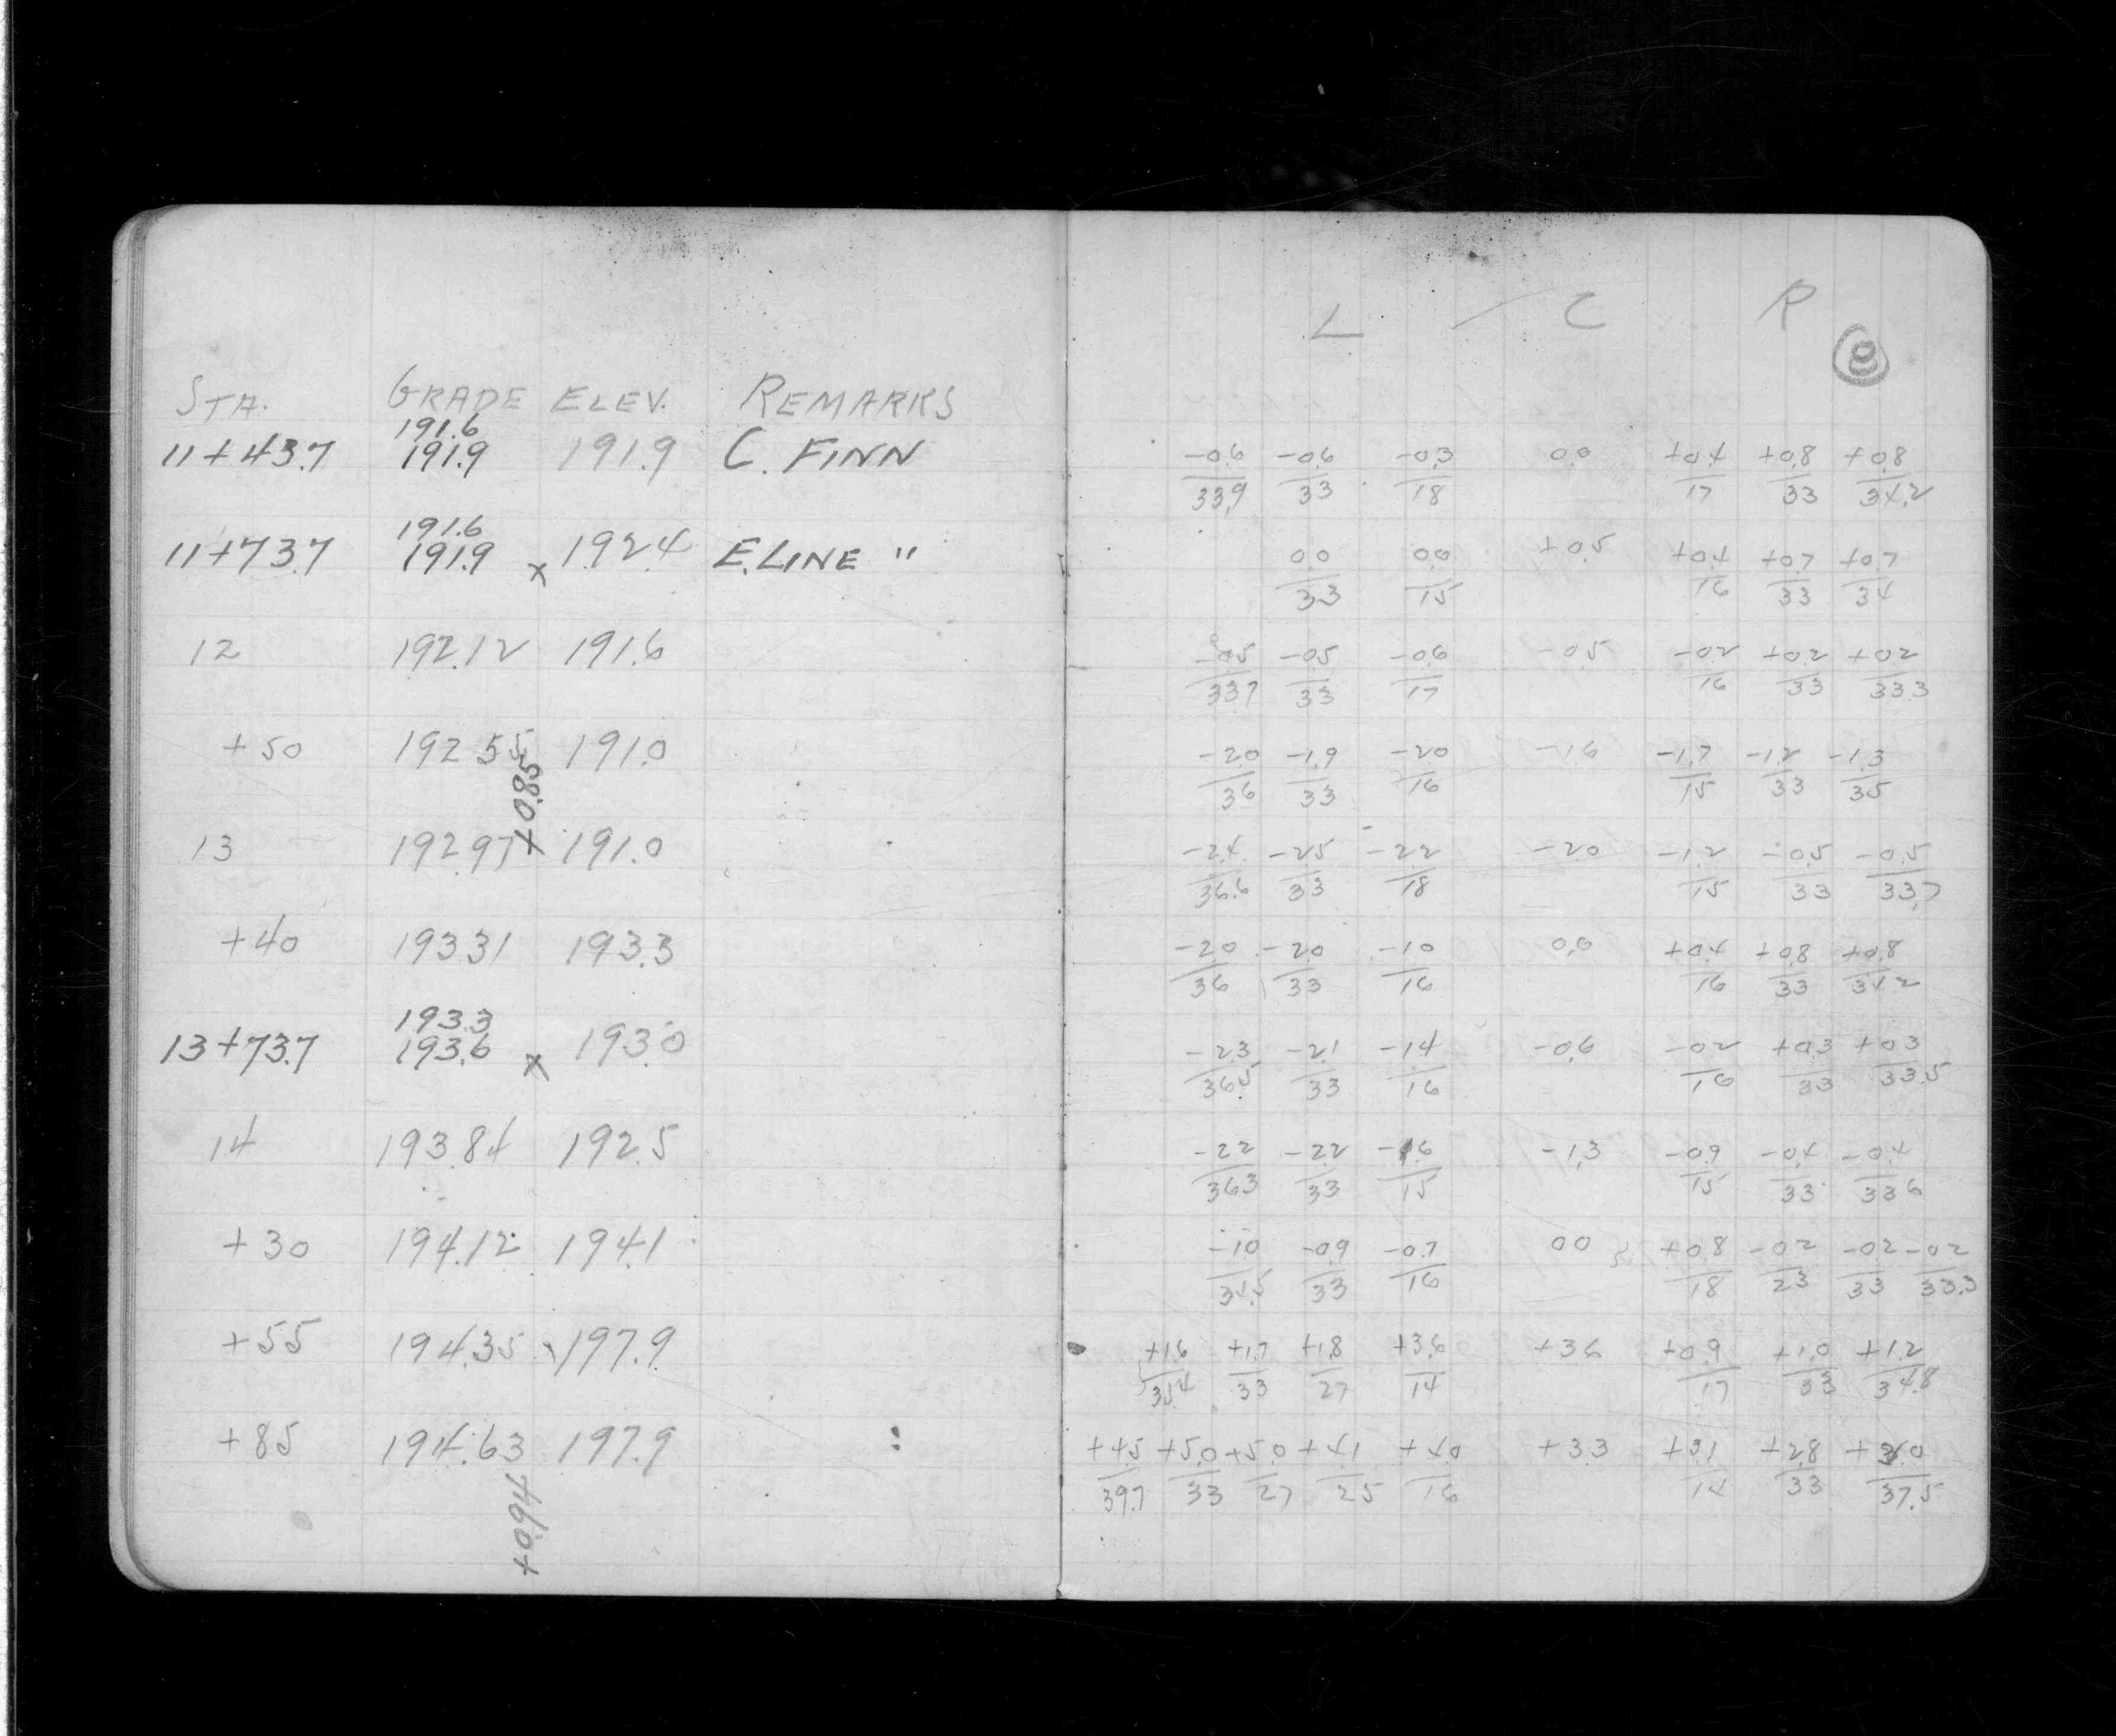 L C R
8
STA. GRADE ELEV. REMARKS
191.6
11+43.7 191.9 191.9 C. FINN -0.6 -0.6 -0.3 0.0 +0.4 +0.8 +0.8
33.9 33 18 17 33 34.2
191.6
11+73.7 191.9 x 192.4 E.LINE " 0.0 0.0 +0.5 +0.4 +0.7 +0.7
33 15 16 33 34
12 192.12 191.6 -0.5 -0.5 -0.6 -0.5 -0.2 +0.2 +0.2
33.7 33 17 16 33 33.3
+50 192.55 191.0 -2.0 -1.9 -2.0 -1.6 -1.7 -1.2 -1.3
36 33 16 15 33 35
+0.85
13 192.97 191.0 -2.4 -2.5 -2.2 -2.0 -1.2 -0.5 -0.5
36.6 33 18 15 33 33.7
+40 193.31 193.3 -2.0 -2.0 -1.0 0.0 +0.4 +0.8 +0.8
36 33 16 16 33 34.2
193.3
13+73.7 193.6 x 193.0 -2.3 -2.1 -1.4 -0.6 -0.2 +0.3 +0.3
36.5 33 16 16 33 33.5
14 193.84 192.5 -2.2 -2.2 -1.6 -1.3 -0.9 -0.4 -0.4
36.3 33 15 15 33 33.6
+30 194.12 194.1 -1.0 -0.9 -0.7 0.0 +0.8 -0.2 -0.2 -0.2
34.5 33 16 18 23 33 33.3
+55 194.35 197.9 +1.6 +1.7 +1.8 +3.6 +3.6 +0.9 +1.0 +1.2
35.4 33 27 14 17 33 34.8
+85 194.63 197.9 +4.5 +5.0 +5.0 +4.1 +4.0 +3.3 +3.1 +2.8 +3.0
39.7 33 27 25 16 14 33 37.5
+0.94